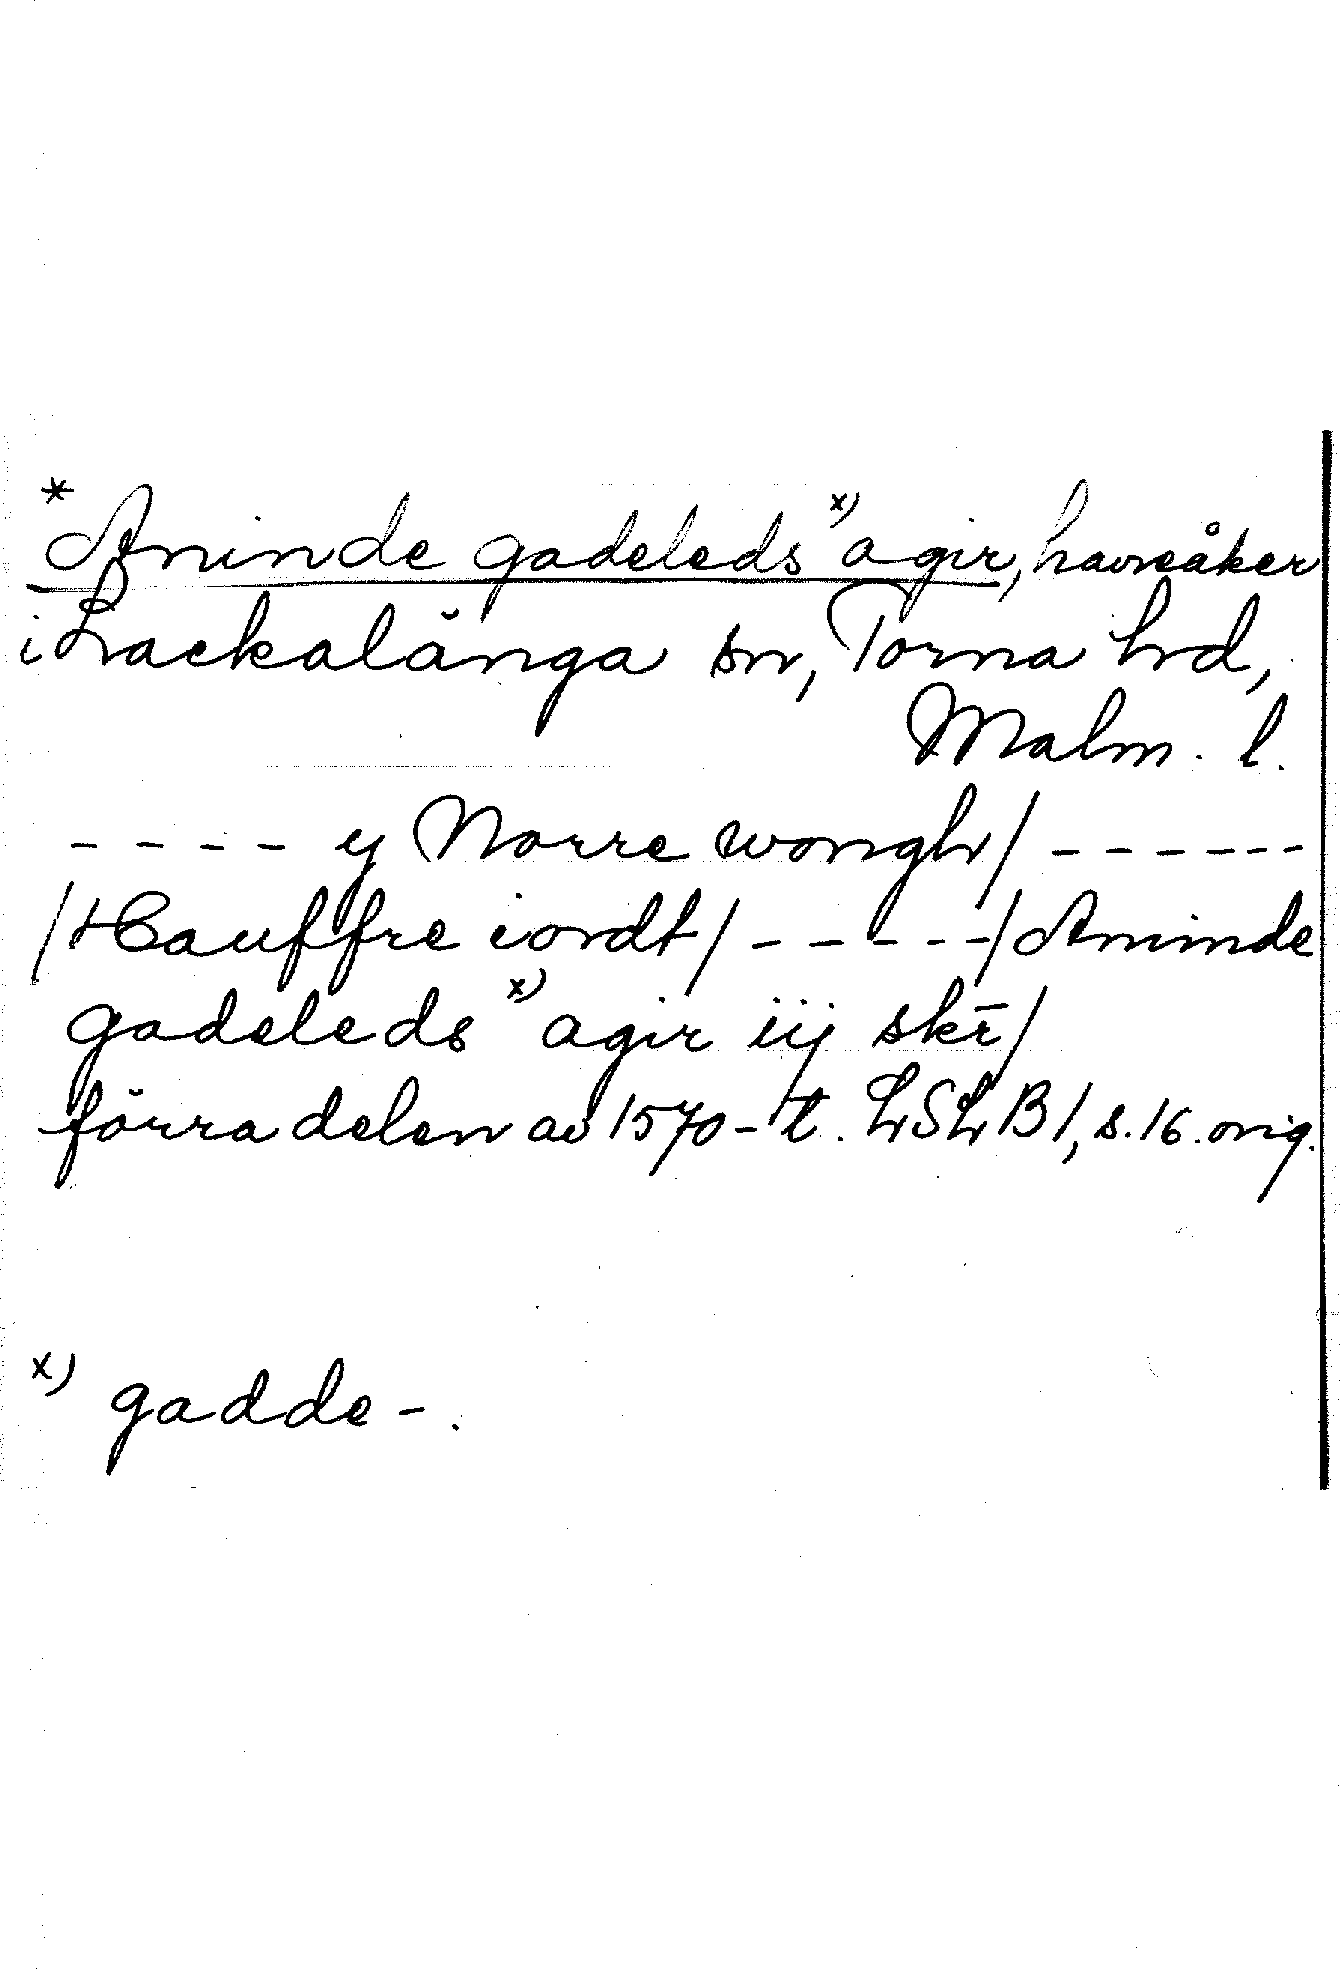 * Aninde gadeleds x) agir, havreåker
i Lackalänga sn, Torna hrd,
Malm. l.
---- y Norre wongh/ ------
/Hauffre iordt/ -----/Aninde
gadeleds x) agir iij skr̄/
förra delen av 1570-t. LSLB1, s. 16. orig.
x) gadde-.